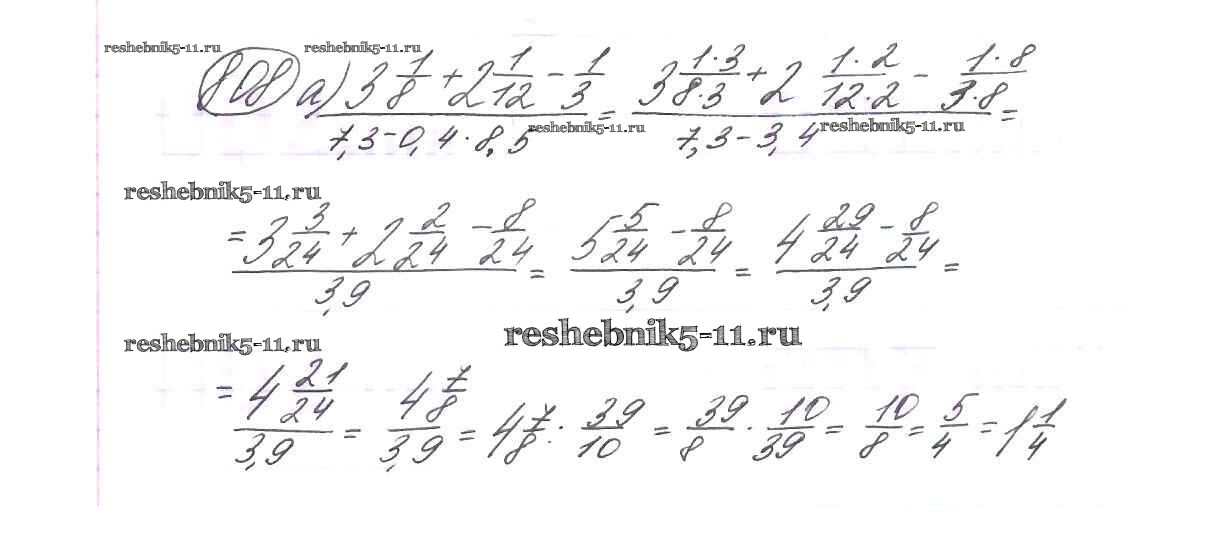 reshebnik5-11.ru reshebnik5-11.ru
808 а) (3 1/8 + 2 1/12 - 1/3)/(7,3 - 0,4 · 8,5) = (3 1·3/8·3 + 2 1·2/12·2 - 1·8/3·8)/(7,3 - 3,4) =
reshebnik5-11.ru reshebnik5-11.ru
reshebnik5-11.ru
= (3 3/24 + 2 2/24 - 8/24)/3,9 = (5 5/24 - 8/24)/3,9 = (4 29/24 - 8/24)/3,9 =
reshebnik5-11.ru reshebnik5-11.ru
= (4 21/24)/3,9 = (4 7/8)/3,9 = 4 7/8 : 39/10 = 39/8 · 10/39 = 10/8 = 5/4 = 1 1/4